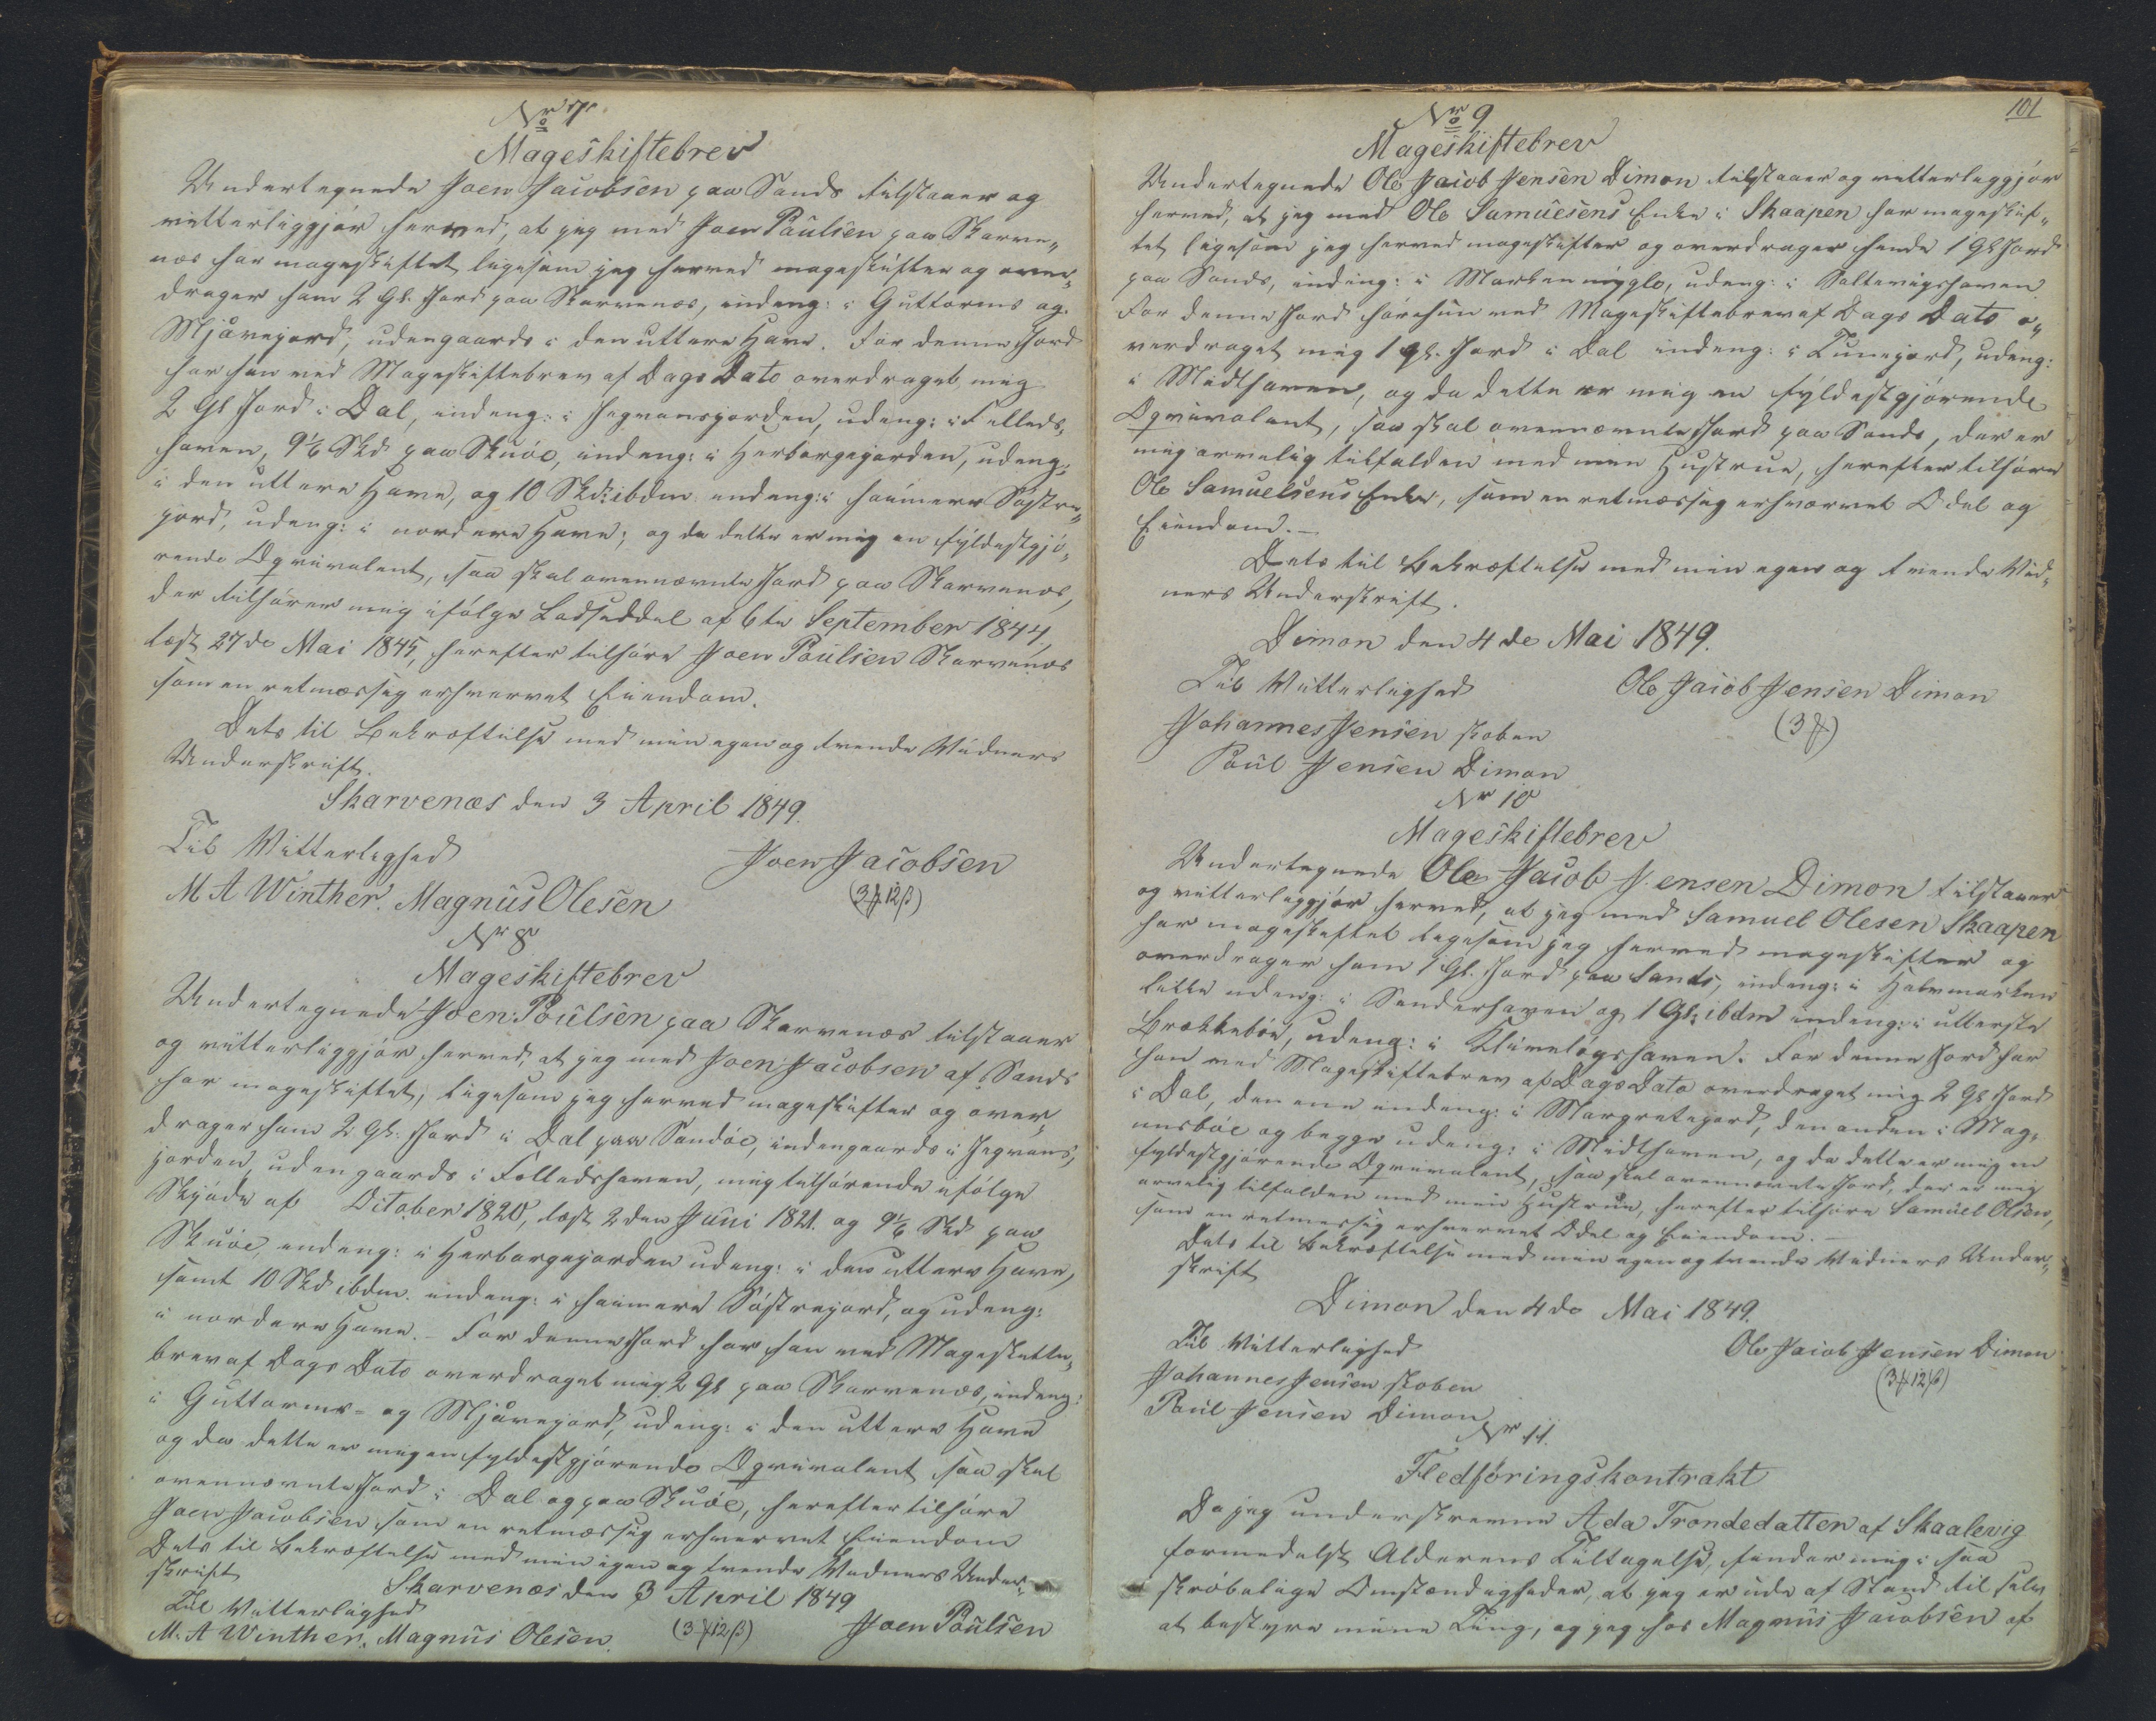 No 7.
Mageskiftebrev
Undertegnede Joen Jacobsen paa Sands tilstaaer og
vitterliggjør herved, at jeg med Joen Poulsen paa Skarve„
næs har mageskiftet ligesom jeg herved mageskifter og over„
drager ham 2 Gl. Jord paa Skarvenæs, indeng: i Guttorms og
Mjåvejord, udengaards i den uttere Have. For denne Jord
har han ved Mageskiftebrev af Dags Dato overdraget mig
2 Gl Jord i Dal, indeng: i Jegvansjorden, udeng: i Felleds„
haven, 9 1/6 Skd paa Skuöe, indeng: i Herborgejorden, udeng:
i den uttere Have, og 10 Skd: ibdm indeng: i heimere Söstre„
jord, udeng: i nordere Have; og da dette er mig en fyldestgjö„
rende Æqvivalent, saa skal ovennævnte Jord paa Skarvenæs,
der tilhører mig ifölge Lodseddel af 6te September 1844,
læst 27de Mai 1845, herefter tilhöre Joen Poulsen Skarvenæs
som en retmæssig erhvervet Eiendom.
Dets til Bekræftelse med min egen og tvende Vidners
Underskrift.
Skarvenæs den 3 April 1849.
Til Vitterlighed
Joen Jacobsen
M A Winther. Magnus Olesen
(3 ₰ 12 ß)
Nr 8
Mageskiftebrev
Undertegnede Joen Poulsen paa Skarvenæs tilstaaer
og vitterliggjör herved, at jeg med Joen Jacobsen af Sands
har mageskiftet, ligesom jeg herved mageskifter og over„
drager ham 2 Gl. Jord i Dal paa Sandöe, indengaards i Jegvans„
jorden, udengaards i Felledshaven, mig tilhörende ifölge
Skjöde af October 1820, læst 2den Juni 1821. og 9 1/6 Skd paa
Skuöe, indeng: i Herborgejorden udeng: i den uttere Have,
samt 10 Skd ibdm. indeng: i heimere Söstrejord, og udeng:
i nordere Have. - For denne Jord har han ved Mageskifte„
brev af Dags Dato overdraget mig 2 Gl paa Skarvenæs, indeng:
i Guttorms- og Mjåvejord, udeng: i den uttere Have
og da dette er mig en fyldestgjörende Æqvivalent saa skal
ovennævnte Jord i Dal og paa Skuöe, herefter tilhöre
Joen Jacobsen som en retmæssig erhvervet Eiendom
Dets til Bekræftelse med min egen og tvende Vidners Under„
skrift
Skarvenæs den 3 April 1849
Til Vitterlighed
M. A Winther. Magnus Olesen.
(3 ₰ 12 ß)
Joen Poulsen
101
No 9
Mageskiftebrev
Undertegnede Ole Jacob Jensen Dimon tilstaaer og vitterliggjör
herved, at jeg med Ole Samuesens Enke i Skaapen har mageskif„
tet ligesom jeg herved mageskifter og overdrager hende 1 Gl Jord
paa Sands, indeng: i Marken , udeng: i Saltevigshaven
For denne Jord har hun ved Mageskiftebrev af Dags Dato o„
verdraget mig 1 Gl. Jord i Dal indeng: i Tunejord, udeng:
i Midthaven, og da dette er mig en fyldestgjörende
Æqvivalent, saa skal ovennævnte Jord paa Sands, der er
mig arvelig tilfalden med min Hustrue, herefter tilhöre
Ole Samuelsens Enke, som en retmæssig erhvervet Odel og
Eiendom. -
Dets til Bekræftelse med min egen og tvende Vid„
ners Underskrift.
Dimon den 4de Mai 1849.
Til Vitterlighed
Ole Jacob Jensen Dimon
Johannes Jensen skoben
(3 ₰)
Poul Jensen Dimon
Nr 10
Mageskiftebrev
Undertegnede Ole Jacob Jensen Dimon tilstaaer
og vitterliggjör herved, at jeg med Samuel Olesen Skaapen
har mageskiftet ligesom jeg herved mageskifter og
overdrager ham 1 Gl. Jord paa Sands, indeng: i Halvmarken
udeng: i Sonderhaven og 1 Gl: ibdm indeng: i utterste
Brækkeböe, udeng: i haven. For denne Jord har
han ved Mageskiftebrev af Dags Dato overdraget mig 2 Gl Jord
i Dal, den ene indeng: i Margretejord, den anden i Mag„
nusböe og begge udeng: i Midthaven, og da dette er mig en
fyldestgjörende Æqvivalent, saa skal ovennævnte Jord, der er mig
arvelig tilfalden med min Hustrue, herefter tilhöre Samuel Olsen,
som en retmessig erhvervet Odel og Eiendom. -
Dets til Bekræftelse med min egen og tvende Vidners Under„
skrift
Dimon den 4de Mai 1849.
Til Vitterlighed
Ole Jacob Jensen Dimon
Johannes Jensen skoben
(3 ₰ 12 ß)
Poul Jensen Dimon
Nr 11.
Fledföringskontrakt
Da jeg underskrevne Ada Trondedatter af Skaalevig
formedelst Alderens Tiltagelse, finder mig i saa
skröbelige Omstændigheder, at jeg er ude af Stand til selv
at bestyre mine Ting, og jeg hos Magnus Jacobsen af